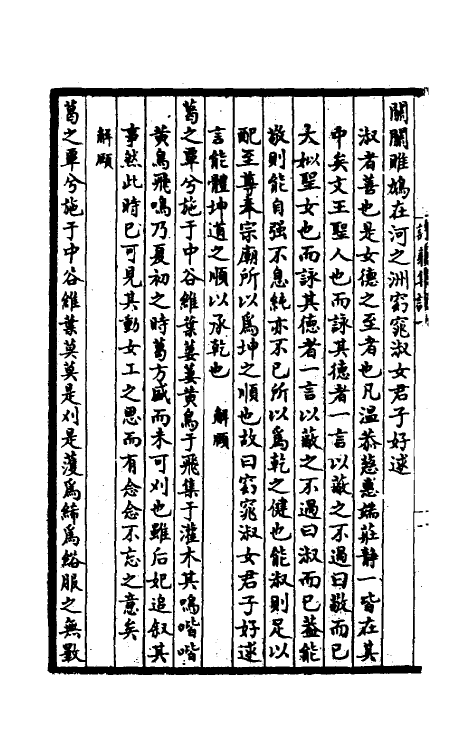 關關雎鳩在河之洲窈窕淑女君子好逑
淑者善也是女德之至者也凡温恭慈惠端莊靜一皆在其
中矣文王聖人也而詠其德者一言以蔽之不過曰敬而已
大姒聖女也而詠其德者一言以蔽之不過曰淑而已葢能
敬則能自强不息純亦不已所以為乾之健也能淑則足以
配至尊奉宗廟所以為坤之順也故曰窈窕淑女君子好逑
言能體坤道之順以承乾也 解頤
葛之覃兮施于中谷維葉萋萋黄鳥于飛集于灌木其鳴喈喈
黄鳥飛鳴乃夏初之時葛方盛而未可刈也雖后妃追叙其
事然此時已可見其動女工之思而有念念不忘之意矣
解頤
葛之覃兮施于中谷維葉莫莫是刈是濩為絺為綌服之無斁